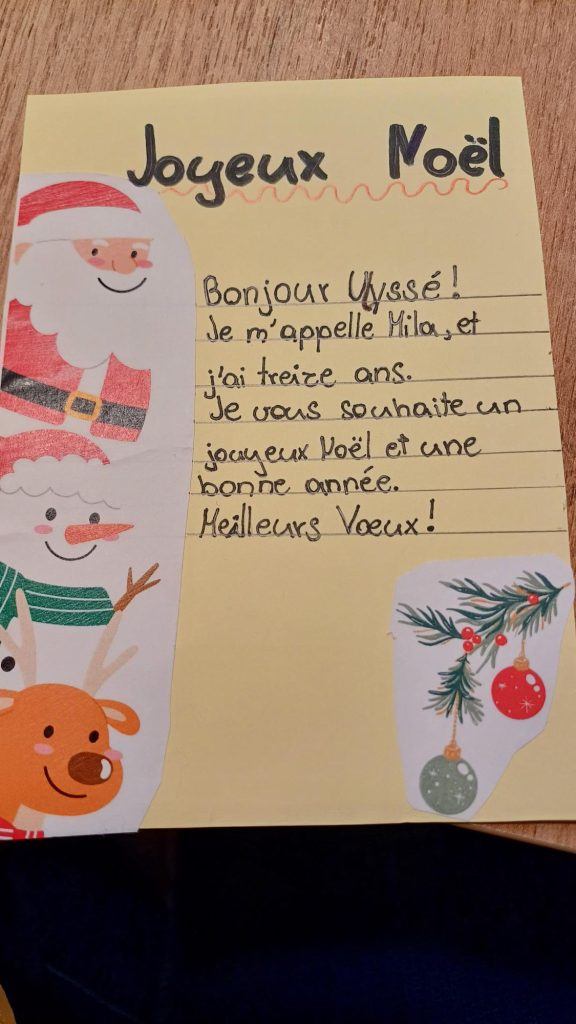 Joyeux Noël
Bonjour Ulyssé!
Je m'appelle Mila, et
j'ai treize ans.
Je vous souhaite un
jouyeux Noël et une
bonne année.
Meilleurs Vœux!